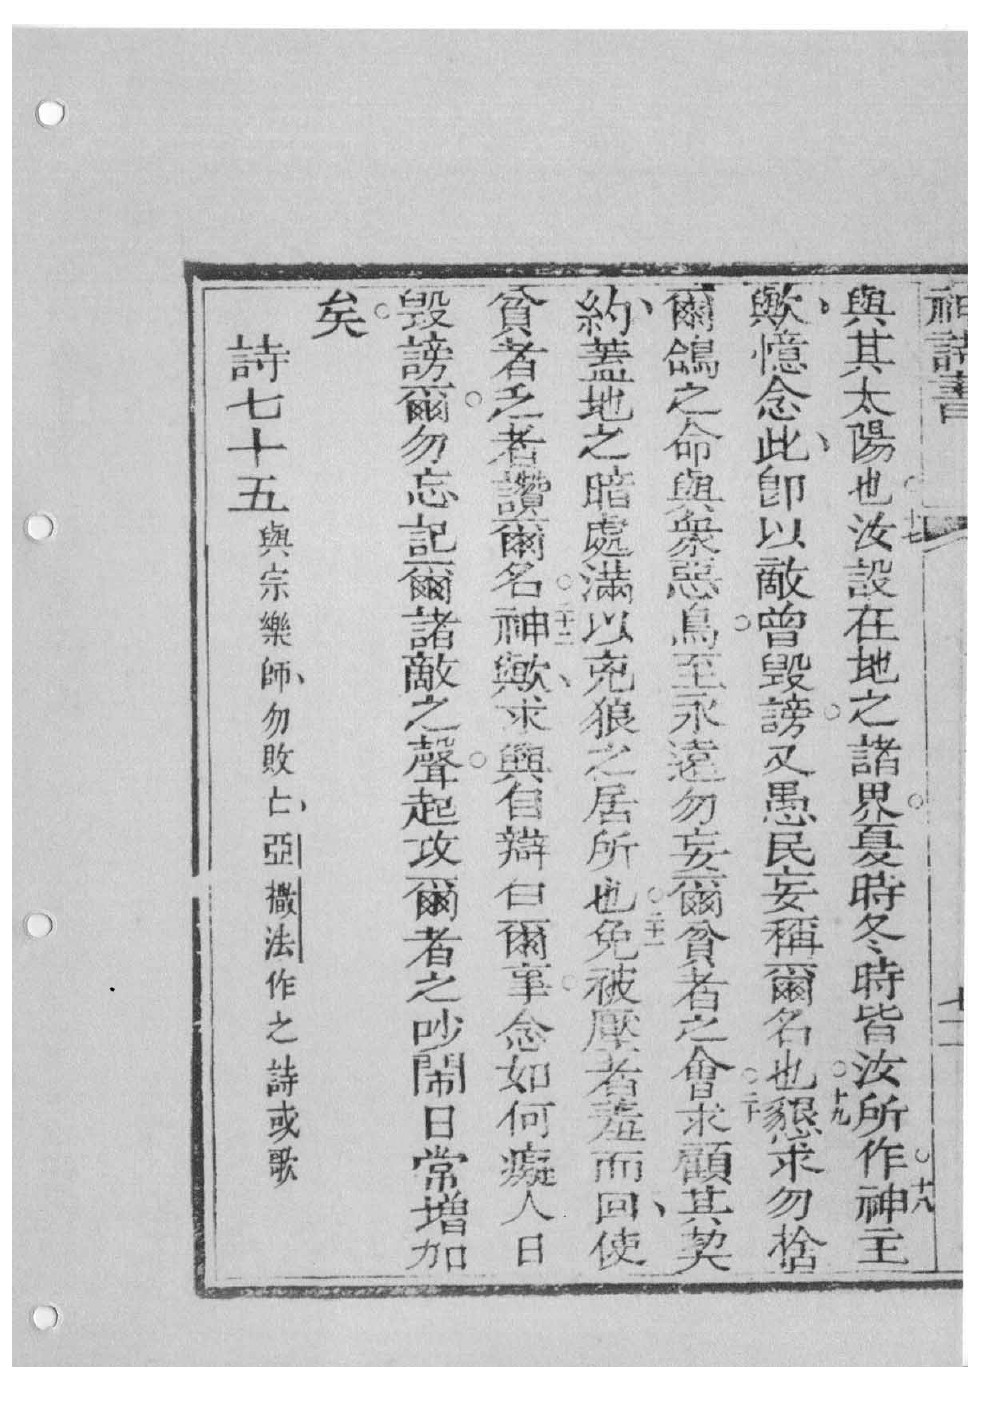 神詩書
七十二
與其太陽也。十七汝設在地之諸界。夏時冬時皆汝所作。十八神主
歟、憶念此、卽以敵曾毀謗。又愚民妄稱爾名也。十九懇求勿捨
爾鴿之命與衆惡鳥。至永遠勿妄爾貧者之會。二十求顧其契
約、蓋地之暗處滿以兇狼之居所也。二十一免被壓者羞而回、使
貧者乏者讚爾名。二十二神歟、求興自辯白爾事。念如何癡人日
毀謗爾。勿忘記爾諸敵之聲。起攻爾者之吵鬧日常增加
矣。
詩七十五 與宗樂師、勿敗亡、亞撒法作之詩或歌